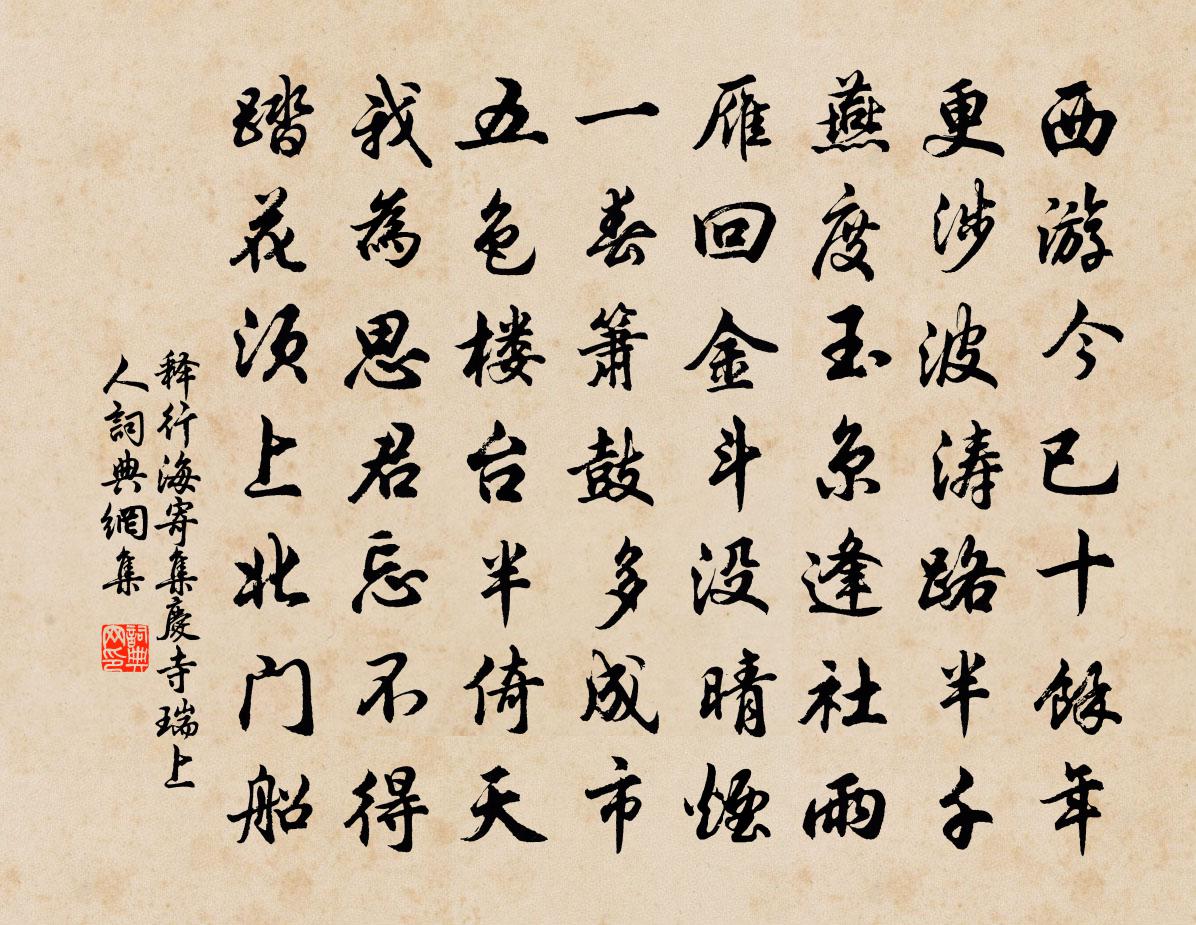 西游今已十餘年
更涉波涛路半千
燕度玉京逢社雨
雁回金斗没晴煙
一春箫鼓多成市
五色楼台半倚天
我為思君忘不得
踏花须上北门船
释行海寄集慶寺瑞上
人詞典網集
詞典
网印